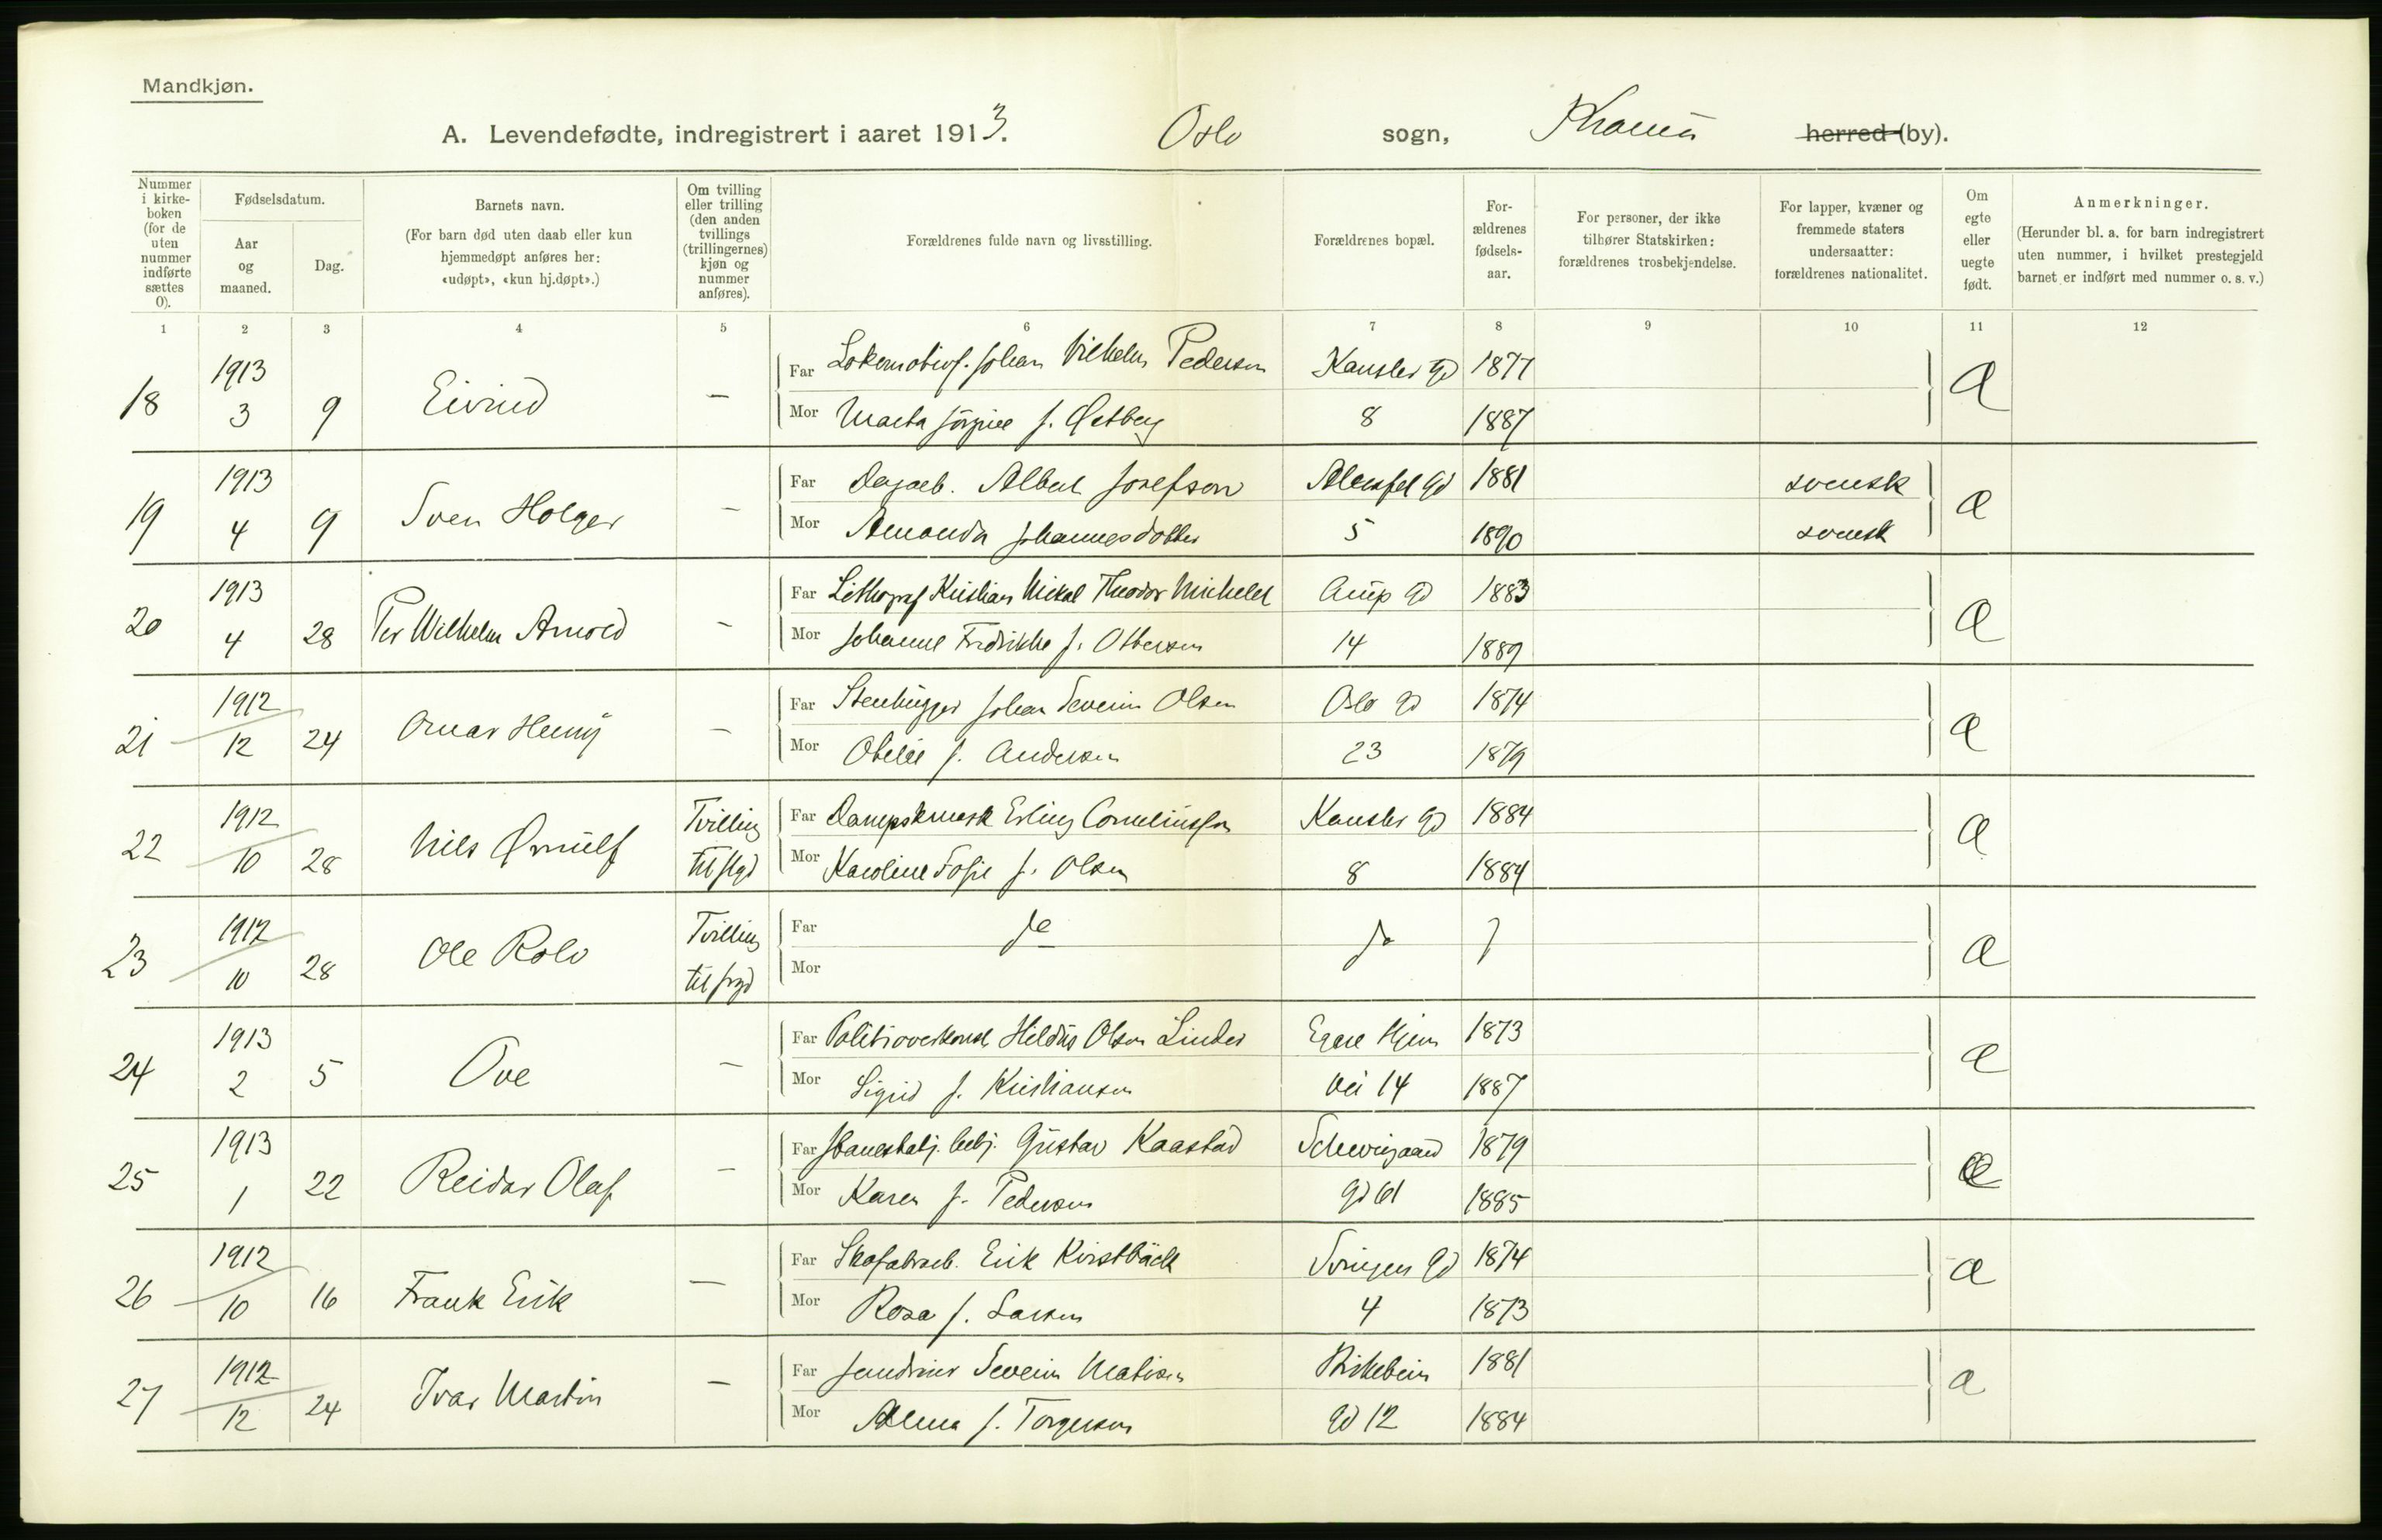 Mandkjøn.
A. Levendefødte, indregistrert i aaret 1913. Oslo sogn, herred (by).
Nummer i kirkeboken (for de uten nummer indførte sættes 0).
Fødselsdatum.
Aar og maaned.
Dag.
Barnets navn.
(For barn død uten daab eller kun hjemmedøpt anføres her: «udøpt», «kun hj.døpt».)
Om tvilling eller trilling (den anden tvillings (trillingernes) kjøn og nummer anføres).
Forældrenes fulde navn og livsstilling.
Forældrenes bopæl.
Forældrenes fødselsaar.
For personer, der ikke tilhører Statskirken: forældrenes trosbekjendelse.
For lapper, kvæner og fremmede staters undersaatter: forældrenes nationalitet.
Om egte eller uegte født.
Anmerkninger.
(Herunder bl. a. for barn indregistrert uten nummer, i hvilket prestegjeld barnet er indført med nummer o. s. v.)
1 2 3 4 5 6 7 8 9 10 11 12
18 1913 3 9 Eivind —
Far Lokomotivf. Johan Vilhelm Pedersen Kansler Gd 1877
Mor Marta f. Østberg 8 1887
19 1913 4 9 Sven Holger —
Far Dagarb. Albert Josefson Gd 1881 svensk
Mor Amanda Johannesdotter 5 1890 svensk
20 1913 4 28 Per Wilhelm Arnold —
Far Lithograf Kristian Mikal Theodor Michelet Gd 1883
Mor Johanne Fredrikke f. Ottersen 14 1889
21 1912 12 24 Omar Henry —
Far Stenhugger Johan Severin Olsen Oslo Gd 1874
Mor Otelie f. Andersen 23 1879
22 1912 10 28 Nils Ørnulf Tvilling til flgd
Far Erling Corneliussen Kansler Gd 1884
Mor Karoline Sofie f. Olsen 8 1884
23 1912 10 28 Ole Rolv Tvilling til frgd
Far
Mor
24 1913 2 5 Ove —
Far Olsen Linder Egne Hjem 1873
Mor Sigrid f. Kristiansen vei 14 1887
25 1913 1 22 Reidar Olaf —
Far Gustav Kaastad Schweigaard 1879
Mor Karen f. Pedersen Gd 61 1885
26 1912 10 16 Frank Erik —
Far Skofabrarb. Erik Kvistbäck Gd 1874
Mor Rosa f. Larsen 4 1873
27 1912 12 24 Ivar Martin —
Far Severin Matisen Birkebein 1881
Mor Alma f. Torgersen Gd 12 1884